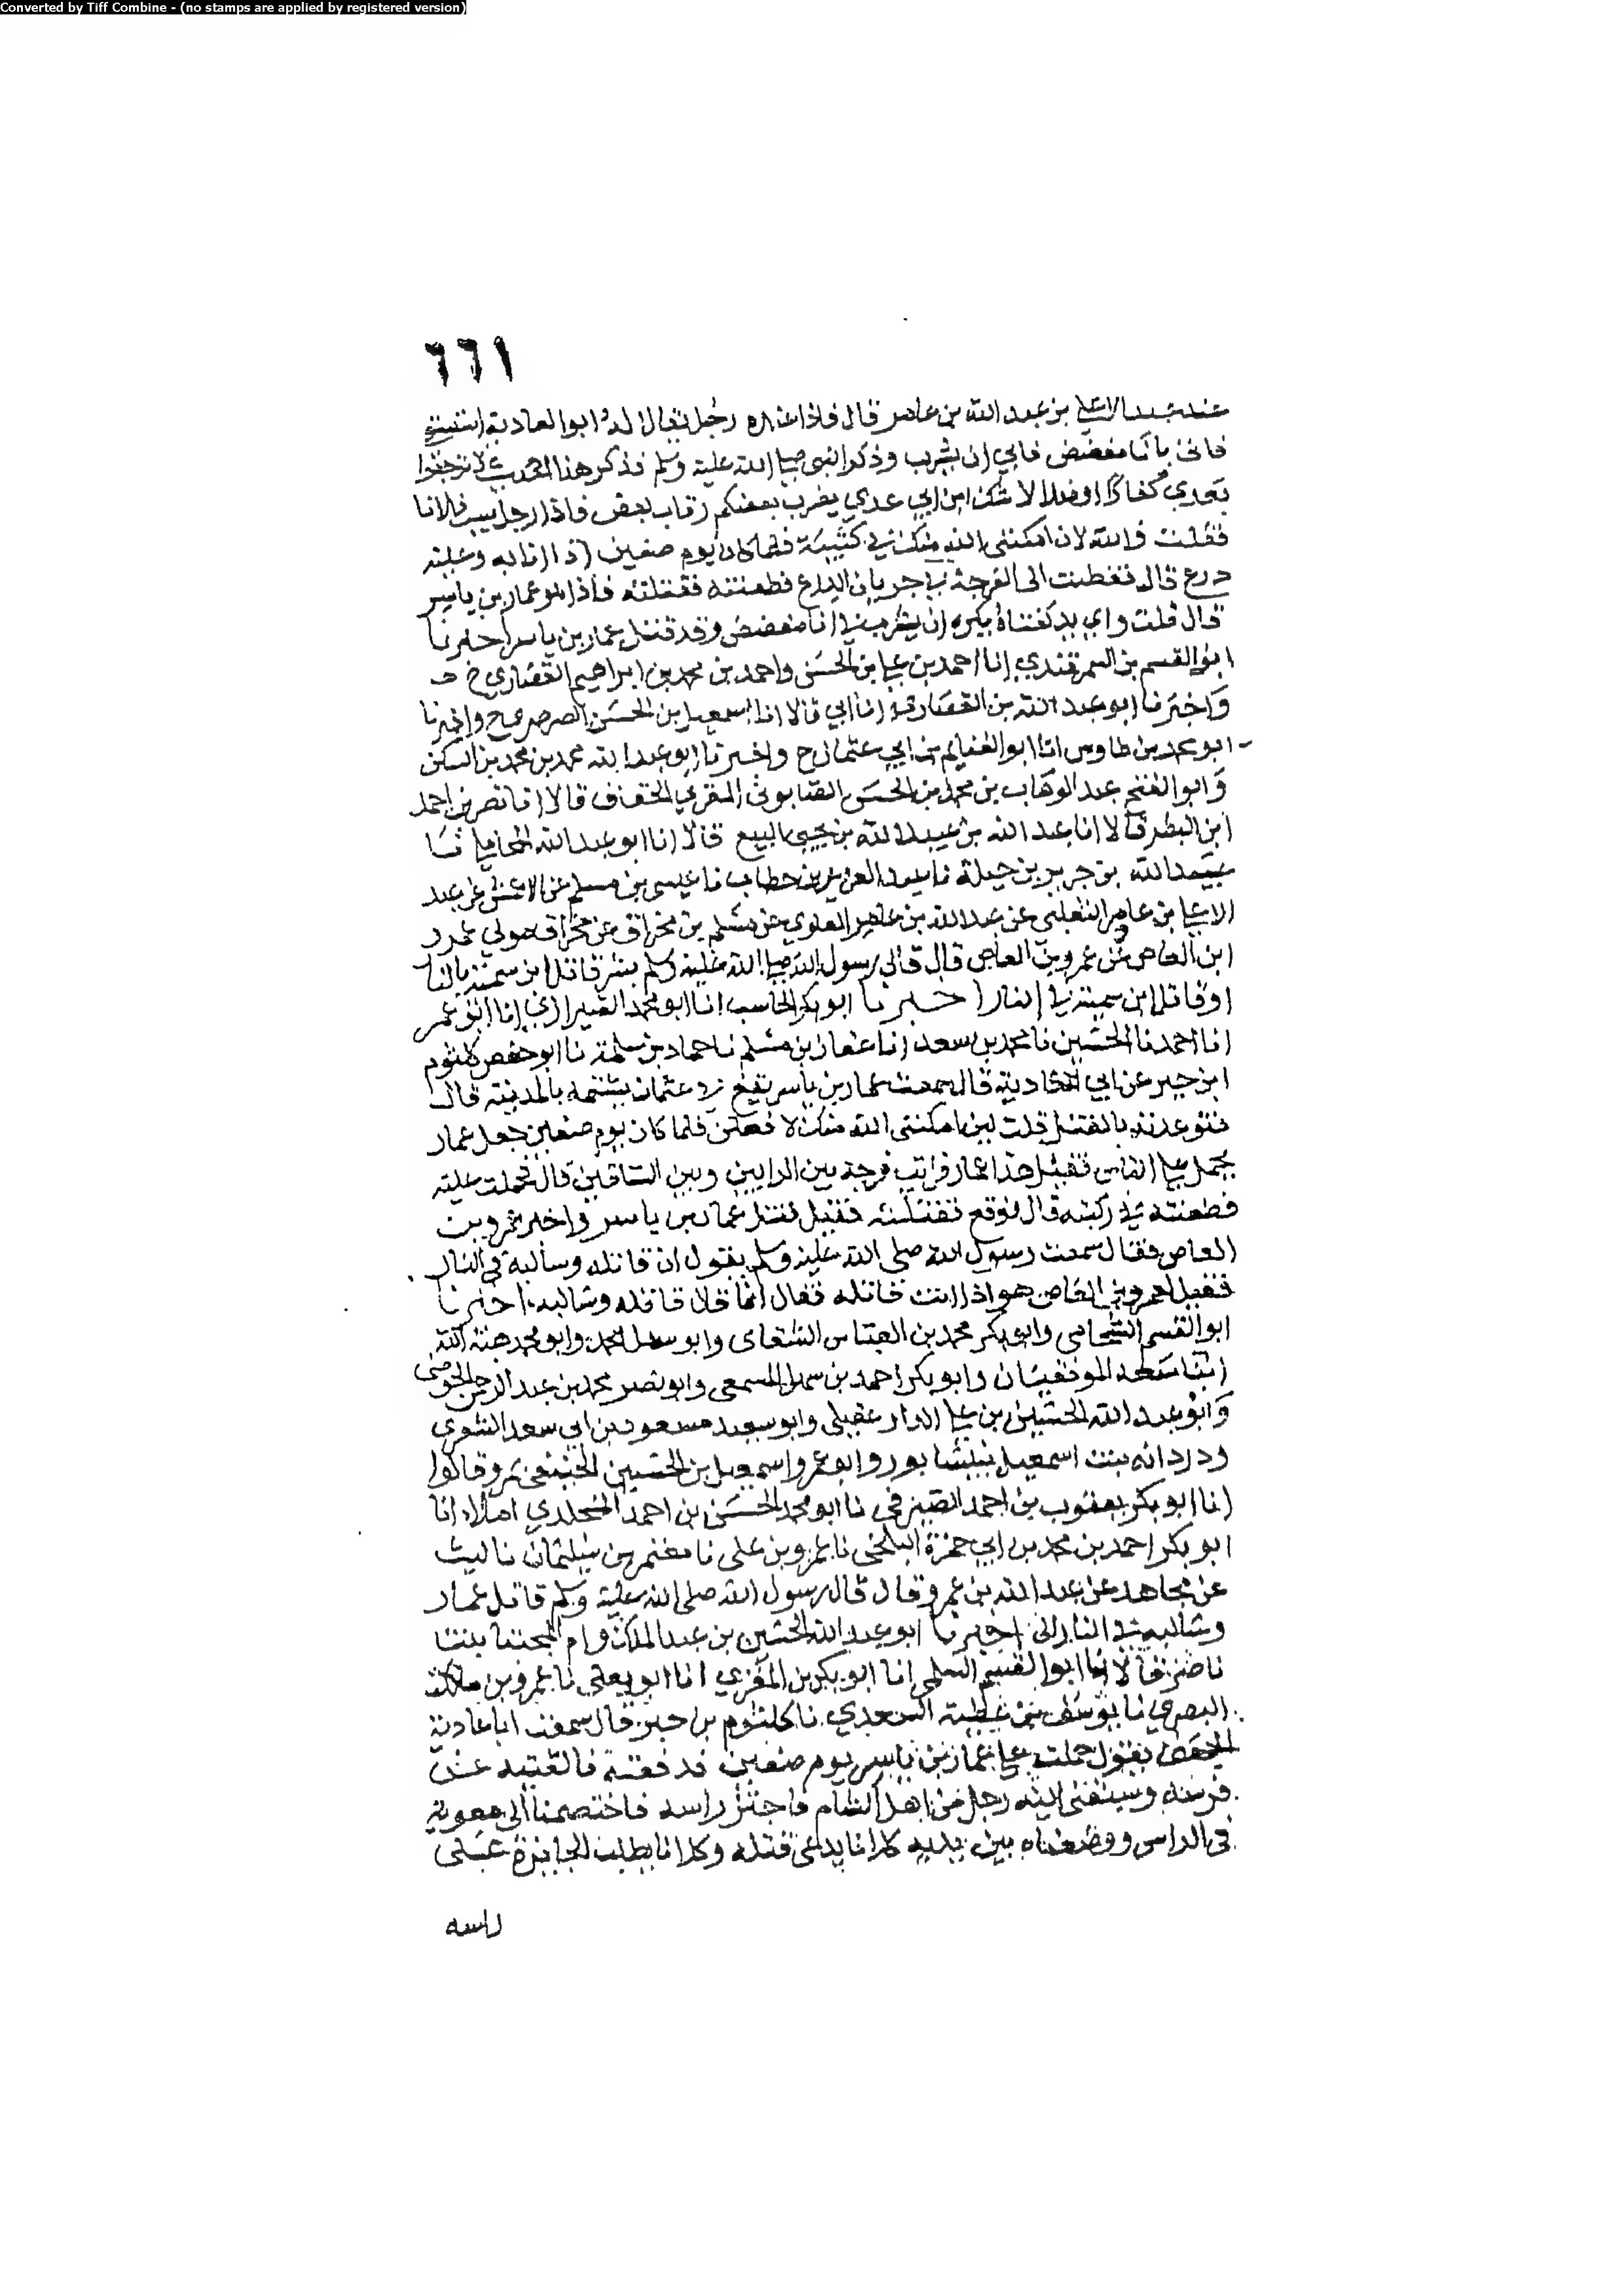 Converted by Tiff Combine - (no stamps are applied by registered version)
٦٦١
عند عبد الاعلى بن عبد الله بن عامر قال فاذا عنده رجل يقال له ابو العادية استسقى
فاتى بانا مفضض فابى ان يشرب وذكر النبي صلى الله عليه وسلم فذكر هذا الحديث لا ترجعوا
بعدي كفارا او ضلالا شك ابن ابي عدي يضرب بعضكم رقاب بعض فاذا رجل يسب فلانا
فقلت والله لان امكنني الله منك في كتيبة فلما كان يوم صفين اذا انا به وعليه
درع قال ففطنت الى الفرجة في جربان الدرع فطعنته فقتلته فاذا هو عمار بن ياسر
قال قلت واي يد كفتاه يكره ان يشرب في انا مفضض وقد قتل عمار بن ياسر اخبرنا
ابو القسم بن السمرقندي انا احمد بن علي بن الحسن واحمد بن محمد بن ابراهيم القصاري ح
واخبرنا ابو عبد الله بن القصاري انا ابي قالا انا اسمعيل بن الحسن الصرصري ح واخبرنا
ابو محمد بن طاوس انا ابو الغنايم بن ابي عثمان ح واخبرنا ابو عبد الله محمد بن محمد بن السكن
وابو الفتح عبد الوهاب بن محمد بن الحسن الصابوني المقري الخفاف قالا انا نصر بن احمد
ابن البطر قالا انا عبد الله بن عبيد الله بن يحيى البيع قالا انا ابو عبد الله المحاملي نا
عبيد الله بن جرير بن جبلة نا عبد العزيز بن خطاب نا عيسى بن مسلم عن الاعمش عن عبد
الاعلى بن عامر الثعلبي عن عبد الله بن عامر العلوي عن مسلم بن مخراق عن مخراق مولى عمرو
ابن العاص عن عمرو بن العاص قال قال رسول الله صلى الله عليه وسلم بشر قاتل ابن سمية بالنار
او قاتل ابن سمية في النار اخبرنا ابو بكر الحاسب انا ابو محمد الشيرازي انا ابو عمر
انا احمد نا الحسين نا محمد بن سعد انا عفان بن مسلم نا حماد بن سلمة نا ابو حفص كلثوم
ابن جبر عن ابي الغادية قال سمعت عمار بن ياسر يقع في عثمان يشتمه بالمدينة قال
فتوعدته بالقتل قلت لين امكنني الله منك لافعلن فلما كان يوم صفين جعل عمار
يحمل على الناس فقيل هذا عمار فرايت فرجة بين الرايين وبين الساقين قال فحملت عليه
فطعنته في ركبته قال فوقع فقتلته فقيل قتل عمار بن ياسر واخبر عمرو بن
العاص فقال سمعت رسول الله صلى الله عليه وسلم يقول ان قاتله وسالبه في النار
فقيل لعمرو بن العاص هو اذا انت قاتله فقال انما قال قاتله وسالبه اخبرنا
ابو القسم الشحامي وابو بكر محمد بن العباس الشقاى وابو سهل محمد وابو محمد هبة الله
ابنا سعد الموفقيان وابو بكر احمد بن سهل المسمعي وابو نصر محمد بن عبد الرحمن
وابو عبد الله الحسين بن علي وابو سعيد مسعود بن ابي سعد الشعري
ودردانه بنت اسمعيل بنيسابور وابو عمرو اسمعيل بن الحسين بمرو قالوا
انا ابو بكر يعقوب بن احمد الصيرفي نا ابو محمد الحسن بن احمد المخلدي املاء انا
ابو بكر احمد بن محمد بن ابي حمزة البلخي نا عمرو بن علي نا معتمر بن سليمان نا ليث
عن مجاهد عن عبد الله بن عمرو قال قال رسول الله صلى الله عليه وسلم قاتل عمار
وسالبه في النار اخبرنا ابو عبد الله الحسين بن عبد الملك وام المجتبا بنت
ناصر قالا انا ابو القسم السلمي انا ابو بكر بن المقري انا ابو يعلى نا عمرو بن ملك
البصري نا يوسف بن عطية السعدي نا كلثوم بن جبر قال سمعت ابا غادية
يقول حملت على عمار بن ياسر يوم صفين فدفعته فالقيته عن
فرسه وسبقني اليه رجل من اهل الشام فاجتز راسه فاختصمنا الى معوية
في الراس ووضعناه بين يديه كلانا يدعي قتله وكلانا يطلب الجايزة على
راسه